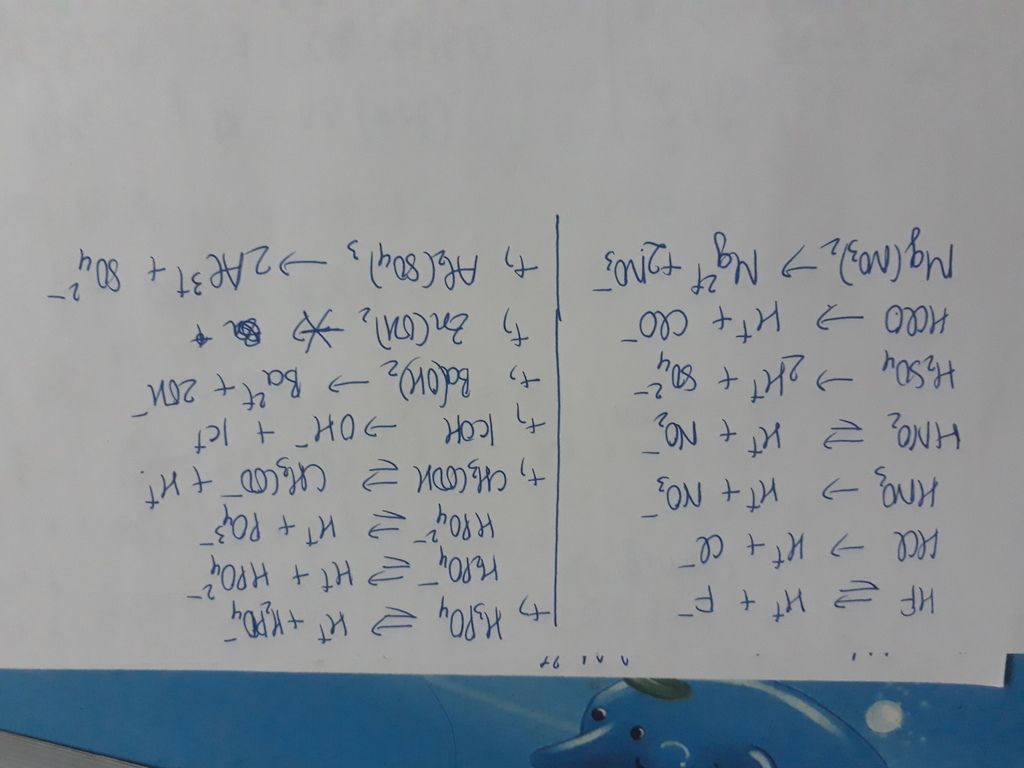 HF ⇌ H⁺ + F⁻
HCl → H⁺ + Cl⁻
HNO₃ → H⁺ + NO₃⁻
HNO₂ ⇌ H⁺ + NO₂⁻
H₂SO₄ → 2H⁺ + SO₄²⁻
HClO → H⁺ + ClO⁻
Mg(NO₃)₂ → Mg²⁺ + 2NO₃⁻
+, H₃PO₄ ⇌ H⁺ + H₂PO₄⁻
H₂PO₄⁻ ⇌ H⁺ + HPO₄²⁻
HPO₄²⁻ ⇌ H⁺ + PO₄³⁻
+, CH₃COOH ⇌ CH₃COO⁻ + H⁺
+, KOH → OH⁻ + K⁺
+, Ba(OH)₂ → Ba²⁺ + 2OH⁻
+, Zn(OH)₂ +
+, Al₂(SO₄)₃ → 2Al³⁺ + SO₄²⁻